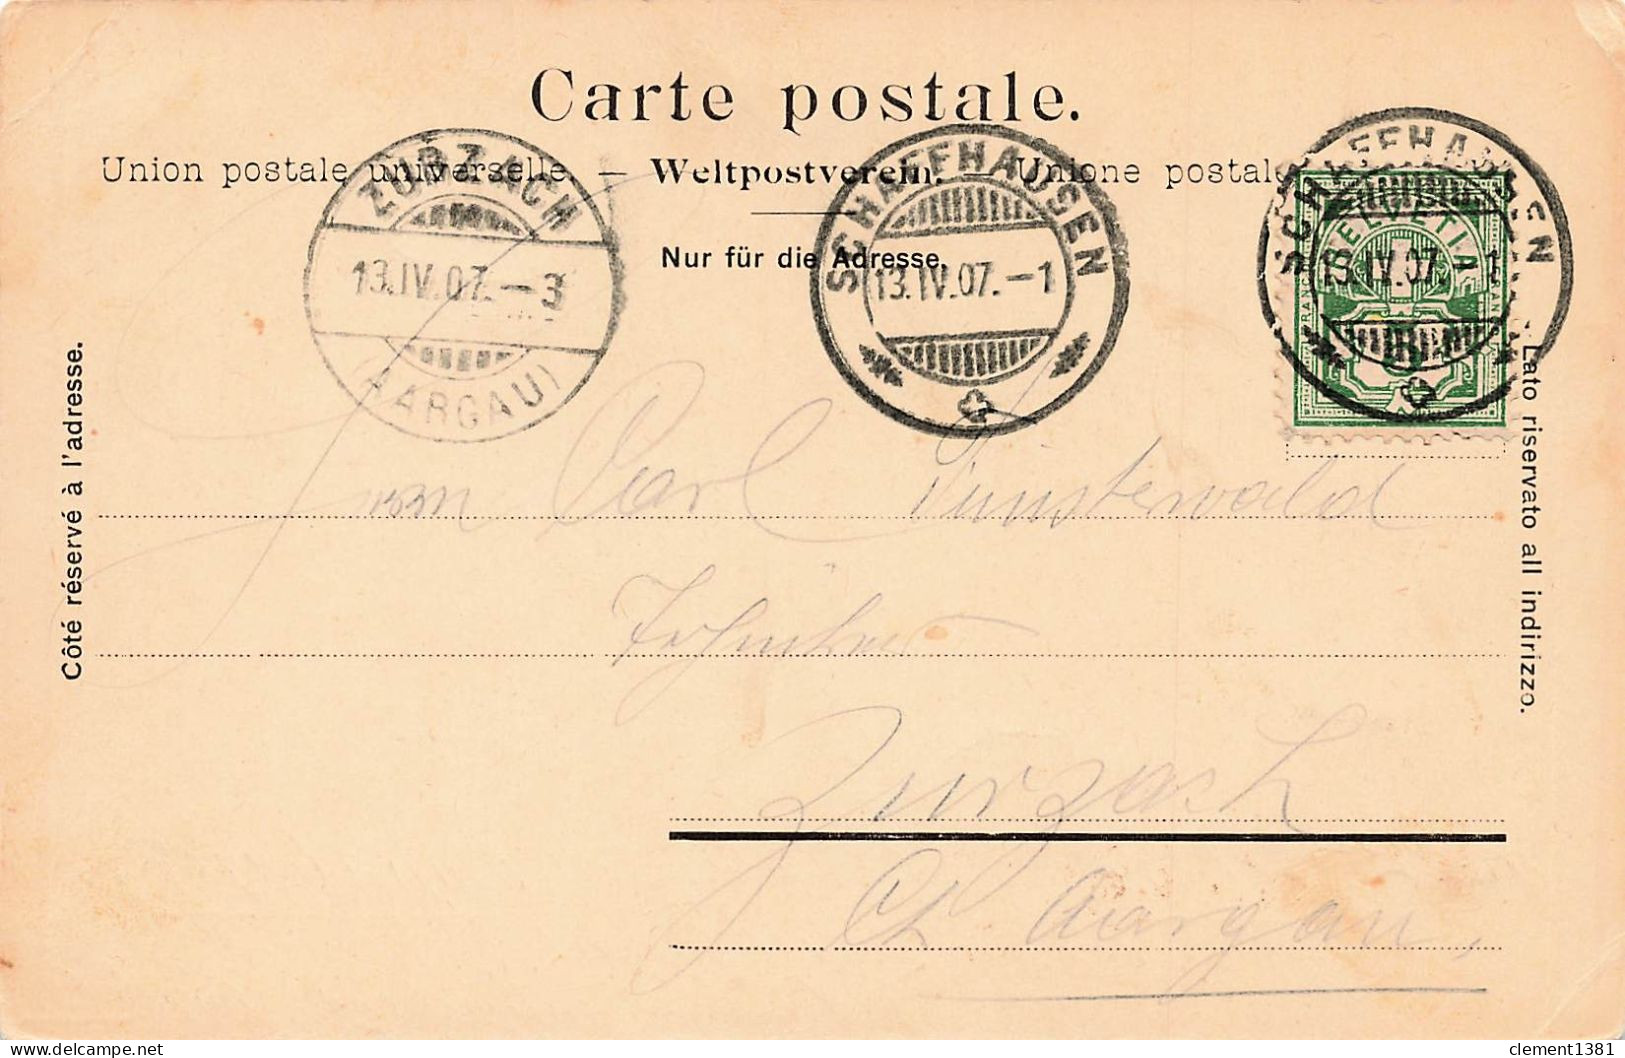 Carte postale.
Union postale universelle. — Weltpostverein. — Unione postale
Nur für die Adresse.
ZURZACH
13.IV.07.–3
(AARGAU)
SCHAFFHAUSEN
13.IV.07.–1
SCHAFFHAUSEN
13.IV.07.–1
HELVETIA
FRANCO
Côté réservé à l'adresse.
Lato riservato all indirizzo.
Carl
Zurzach
Ct. Aargau,
delcampe.net
clement1381